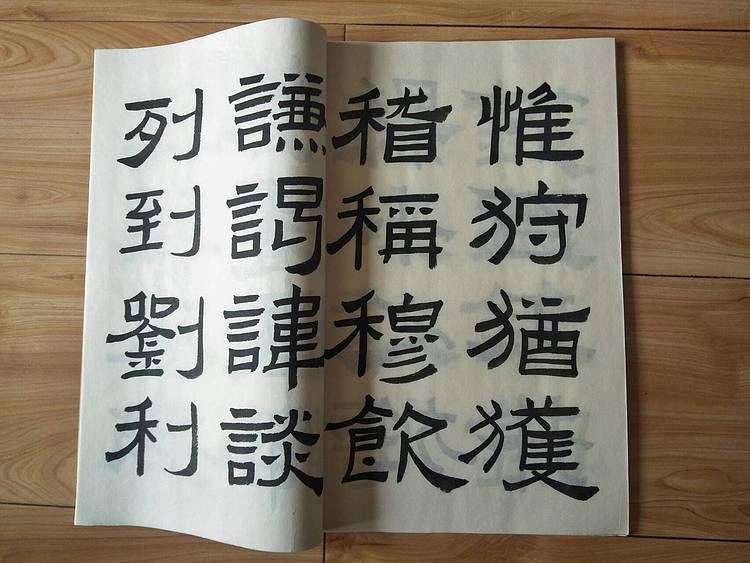 惟狩猶獲
稽稱穆飲
謙謁諱談
列到劉利